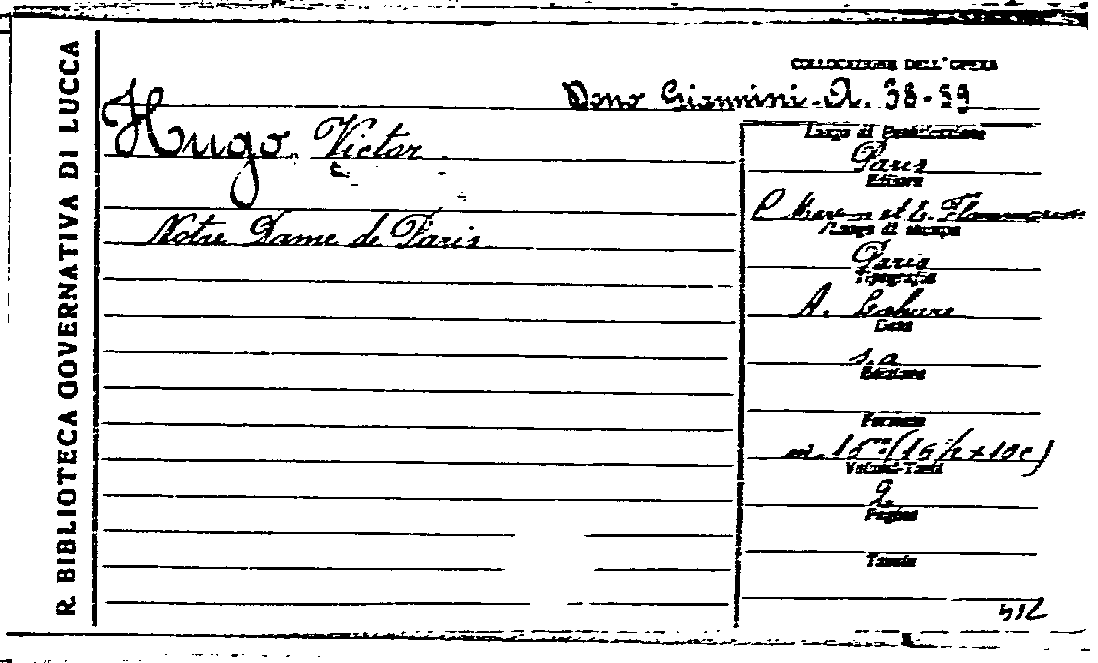 R. BIBLIOTECA GOVERNATIVA DI LUCCA
COLLOCAZIONE DELL'OPERA
Dono Giannini. A. 58-59
Hugo Victor
Notre Dame de Paris
Luogo di Pubblicazione
Paris
Editore
et E. Flammarion
Luogo di stampa
Paris
Tipografia
A. Lahure
Data
s. a
Edizione
Formato
in 16°
Volumi-Tomi
2
Pagine
Tavole
512